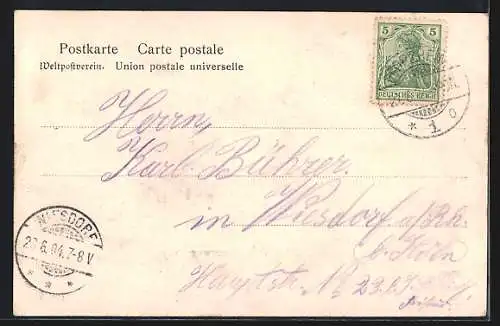 Postkarte Carte postale
Weltpostverein. Union postale universelle
5 5
DEUTSCHES REICH
* 1 o
Herrn
Karl Bührer.
in Wiesdorf a/Rh.
b. Köln
Hauptstr. No
WIESDORF
6.04.7-8V
* * *